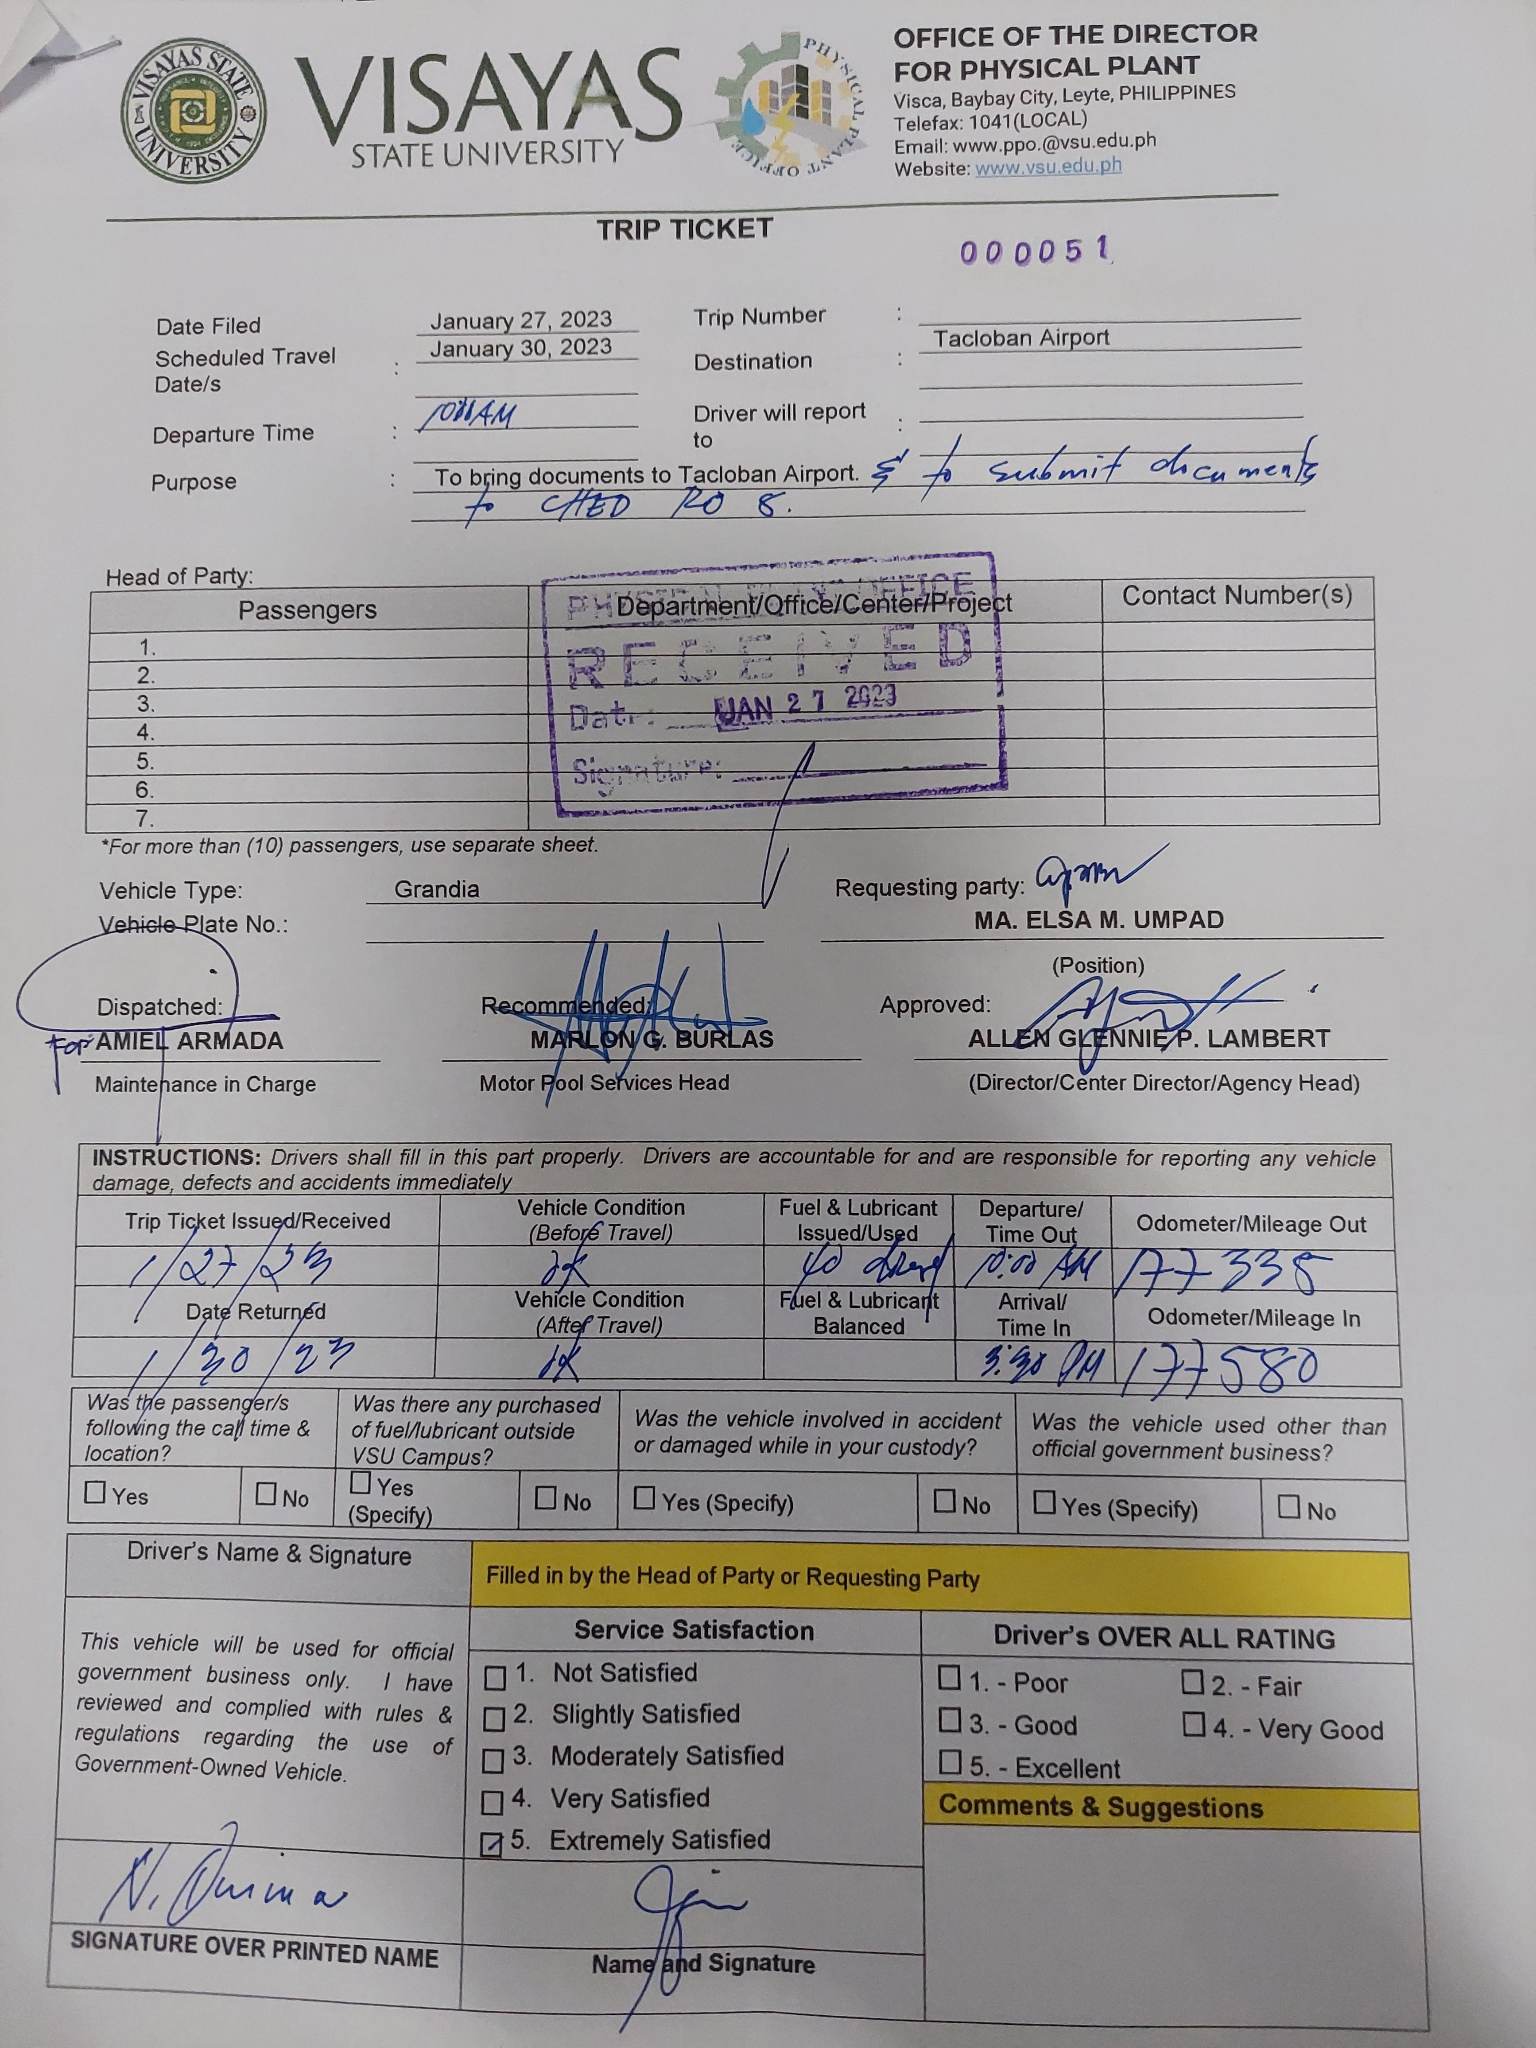 VISAYAS STATE UNIVERSITY
VISAYAS
STATE UNIVERSITY
PHYSICAL PLANT OFFICE
OFFICE OF THE DIRECTOR
FOR PHYSICAL PLANT
Visca, Baybay City, Leyte, PHILIPPINES
Telefax: 1041(LOCAL)
Email: www.ppo.@vsu.edu.ph
Website: www.vsu.edu.ph
TRIP TICKET
000051
Date Filed January 27, 2023 Trip Number :
Scheduled Travel Date/s : January 30, 2023 Destination : Tacloban Airport
Departure Time : AM Driver will report to :
Purpose : To bring documents to Tacloban Airport. & to submit documents
to CHED RO 8.
Head of Party:
Passengers Department/Office/Center/Project Contact Number(s)
1.
2.
3.
4.
5.
6.
7.
PHYSICAL PLANT OFFICE
RECEIVED
Date: JAN 27 2023
Signature:
*For more than (10) passengers, use separate sheet.
Vehicle Type: Grandia Requesting party:
Vehicle Plate No.: MA. ELSA M. UMPAD
(Position)
Dispatched: Recommended: Approved:
For AMIEL ARMADA MARLON G. BURLAS ALLEN GLENNIE P. LAMBERT
Maintenance in Charge Motor Pool Services Head (Director/Center Director/Agency Head)
INSTRUCTIONS: Drivers shall fill in this part properly. Drivers are accountable for and are responsible for reporting any vehicle
damage, defects and accidents immediately
Trip Ticket Issued/Received Vehicle Condition (Before Travel) Fuel & Lubricant Issued/Used Departure/ Time Out Odometer/Mileage Out
1/27/23 OK 40 10:00 AM 177335
Date Returned Vehicle Condition (After Travel) Fuel & Lubricant Balanced Arrival/ Time In Odometer/Mileage In
1/30/23 OK 3:30 PM 177580
Was the passenger/s following the call time & location? Was there any purchased of fuel/lubricant outside VSU Campus? Was the vehicle involved in accident or damaged while in your custody? Was the vehicle used other than official government business?
Yes No Yes (Specify) No Yes (Specify) No Yes (Specify) No
Driver's Name & Signature
Filled in by the Head of Party or Requesting Party
This vehicle will be used for official
government business only. I have
reviewed and complied with rules &
regulations regarding the use of
Government-Owned Vehicle.
Service Satisfaction
1. Not Satisfied
2. Slightly Satisfied
3. Moderately Satisfied
4. Very Satisfied
5. Extremely Satisfied
Driver's OVER ALL RATING
1. - Poor 2. - Fair
3. - Good 4. - Very Good
5. - Excellent
Comments & Suggestions
SIGNATURE OVER PRINTED NAME
Name and Signature